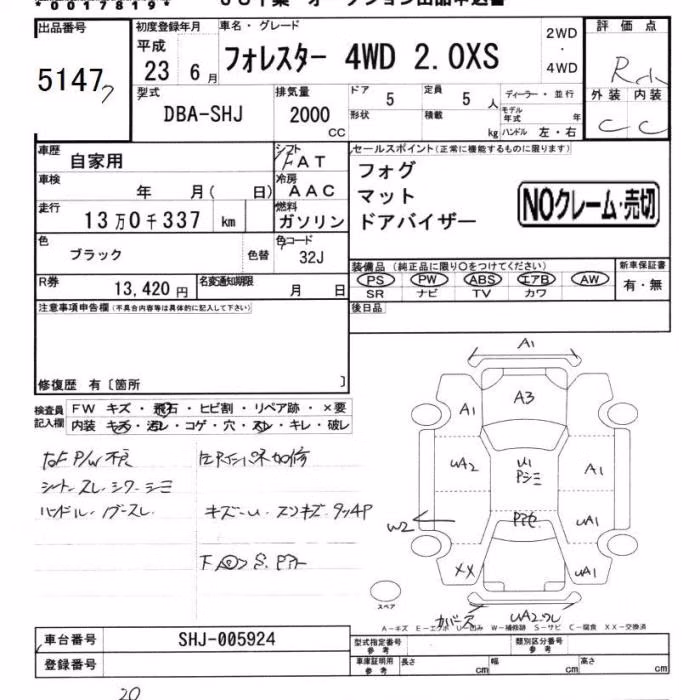 *00178191*
出品番号
5147
初度登録年月
平成
23 6月
車名・グレード
フォレスター 4WD 2.0XS
2WD
・
4WD
評価点
外装 内装
C C
型式
DBA-SHJ
排気量
2000
CC
ドア
5
定員
5 人
形状
積載
kg
ディーラー・並行
モデル年式 年
ハンドル 左・右
車歴
自家用
シフト
FAT
車検
年 月( 日)
冷房
AAC
走行
13万0千337 km
燃料
ガソリン
色
ブラック
色替
色コード
32J
R券
13,420円
名変通知期限
月 日
セールスポイント(正常に機能するものに限ります)
フォグ
マット
ドアバイザー
NOクレーム・売切
装備品(純正品に限り○をつけてください)
PS PW ABS エアB AW
SR ナビ TV カワ
新車保証書
有・無
後日品
注意事項申告欄(不具合内容等は具体的に記入して下さい)
修復歴 有〔箇所 〕
検査員
記入欄
FW キズ・飛石・ヒビ割・リペア跡・×要
内装 キズ・汚レ・コゲ・穴・スレ・キレ・破レ
シート スレ・シワ・シミ
キズ・U・スンキズ・タッチP
A1
A3
A1
UA2
U1
Pシミ
A1
W2
UA1
XX
UA1
スペア
カバース
A-キズ E-エクボ U-凹み W-補修跡 S-サビ C-腐食 XX-交換済
車台番号
SHJ-005924
登録番号
型式指定番号
参考
類別区分番号
参考
車庫証明用
参考
長さ cm 幅 cm 高さ cm
20